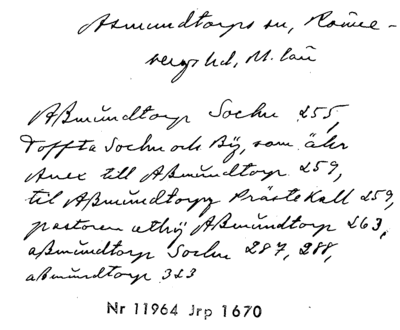 Asmundtorps sn, Rönne-
bergs hd, M. län
Aßmŭndtorp Sochn 255,
Toffta Sochn och Bÿ, som ähr
Anex till Aßmŭndtorp 259,
til Aßmŭndtorp Prästekall 259,
pastoren uthj Aßmŭndtorp 263,
aßmŭndtorp Sochn 287, 288,
aßmŭndtorp 323
Nr 11964 Jrp 1670